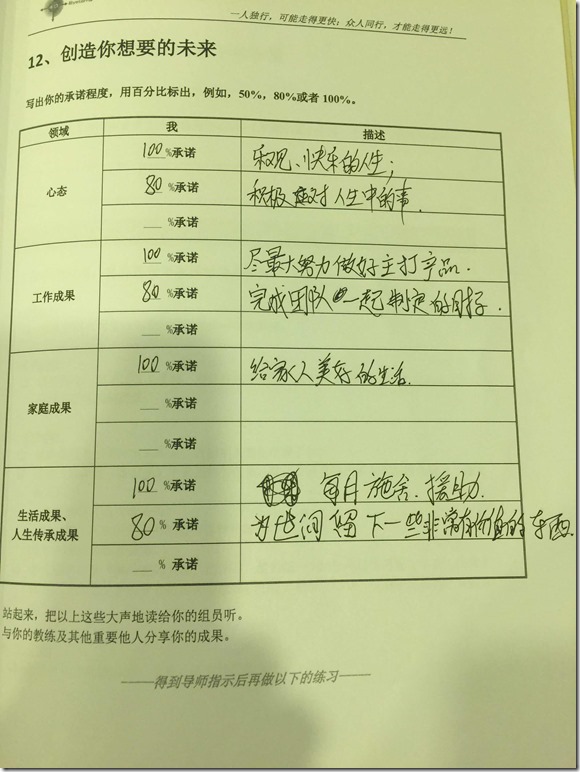 一人独行，可能走得更快；众人同行，才能走得更远！
12、创造你想要的未来
写出你的承诺程度，用百分比标出，例如，50%，80%或者 100%。
领域 我 描述
心态 100 %承诺 乐观、快乐的人生；
80 %承诺 积极面对人生中的事.
%承诺
工作成果 100 %承诺 尽最大努力做好主打产品.
80 %承诺 完成团队一起制定的目标.
%承诺
家庭成果 100 %承诺 给家人美好的生活.
%承诺
%承诺
生活成果、
人生传承成果
100 %承诺 每月施舍、援助.
80 % 承诺 为世间留下一些非常有价值的东西.
% 承诺
站起来，把以上这些大声地读给你的组员听。
与你的教练及其他重要他人分享你的成果。
——得到导师指示后再做以下的练习——